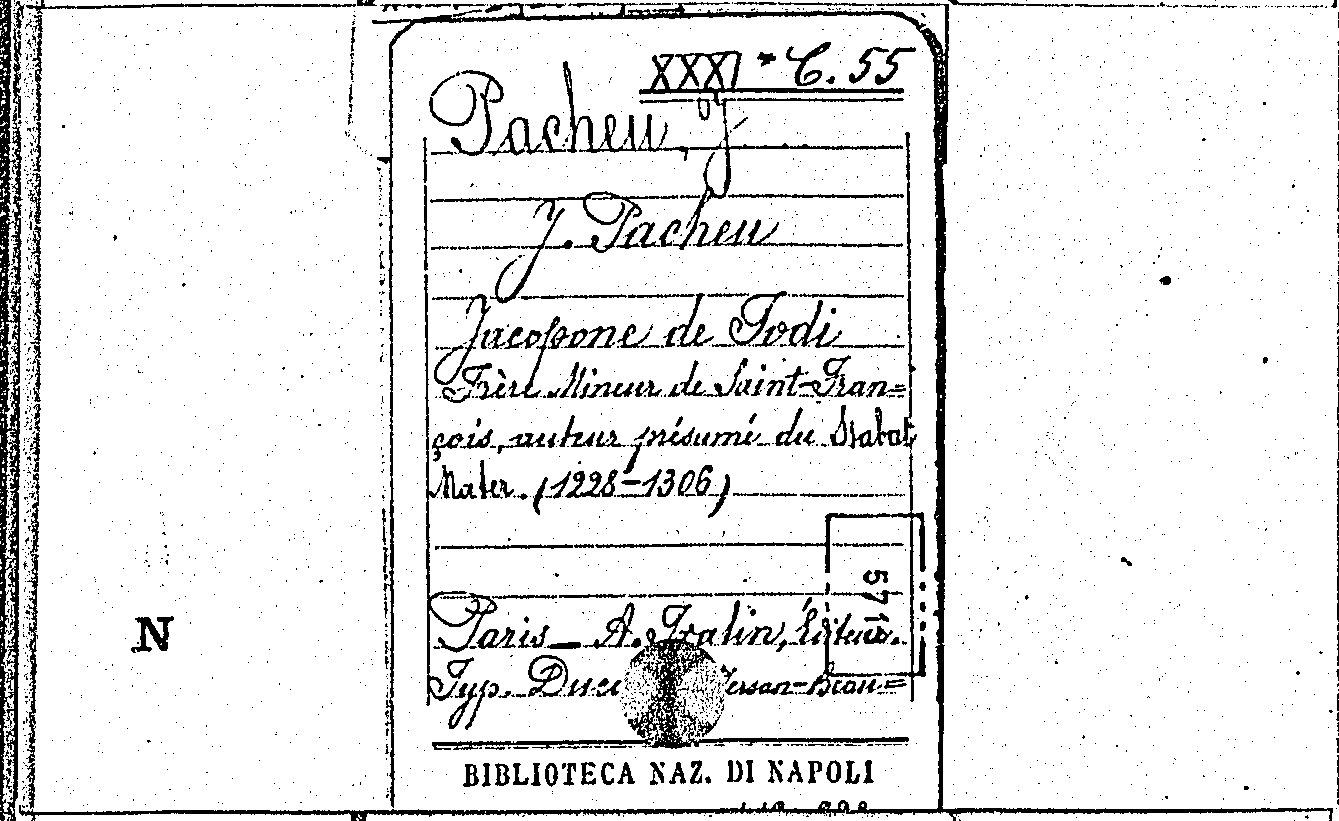 XXXI * C. 55
Pacheu, J
J. Pacheu
Jacopone de Todi
Frère Mineur de Saint-Fran=
çois, auteur présumé du Stabat
Mater. (1228-1306)
Paris — A. Tralin, Éditeur.
Typ. Persan-Beau=
BIBLIOTECA NAZ. DI NAPOLI
N